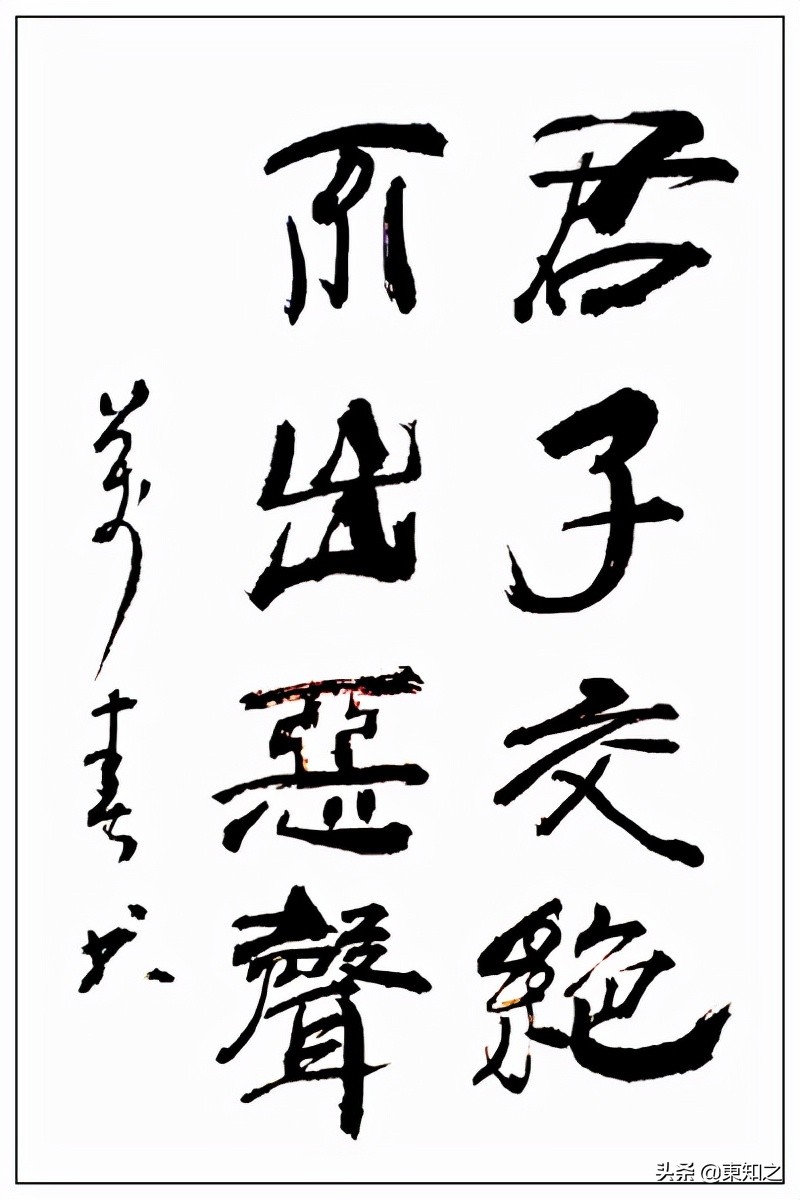 君子交絶
不出惡聲
萬春書
头条 @東知之